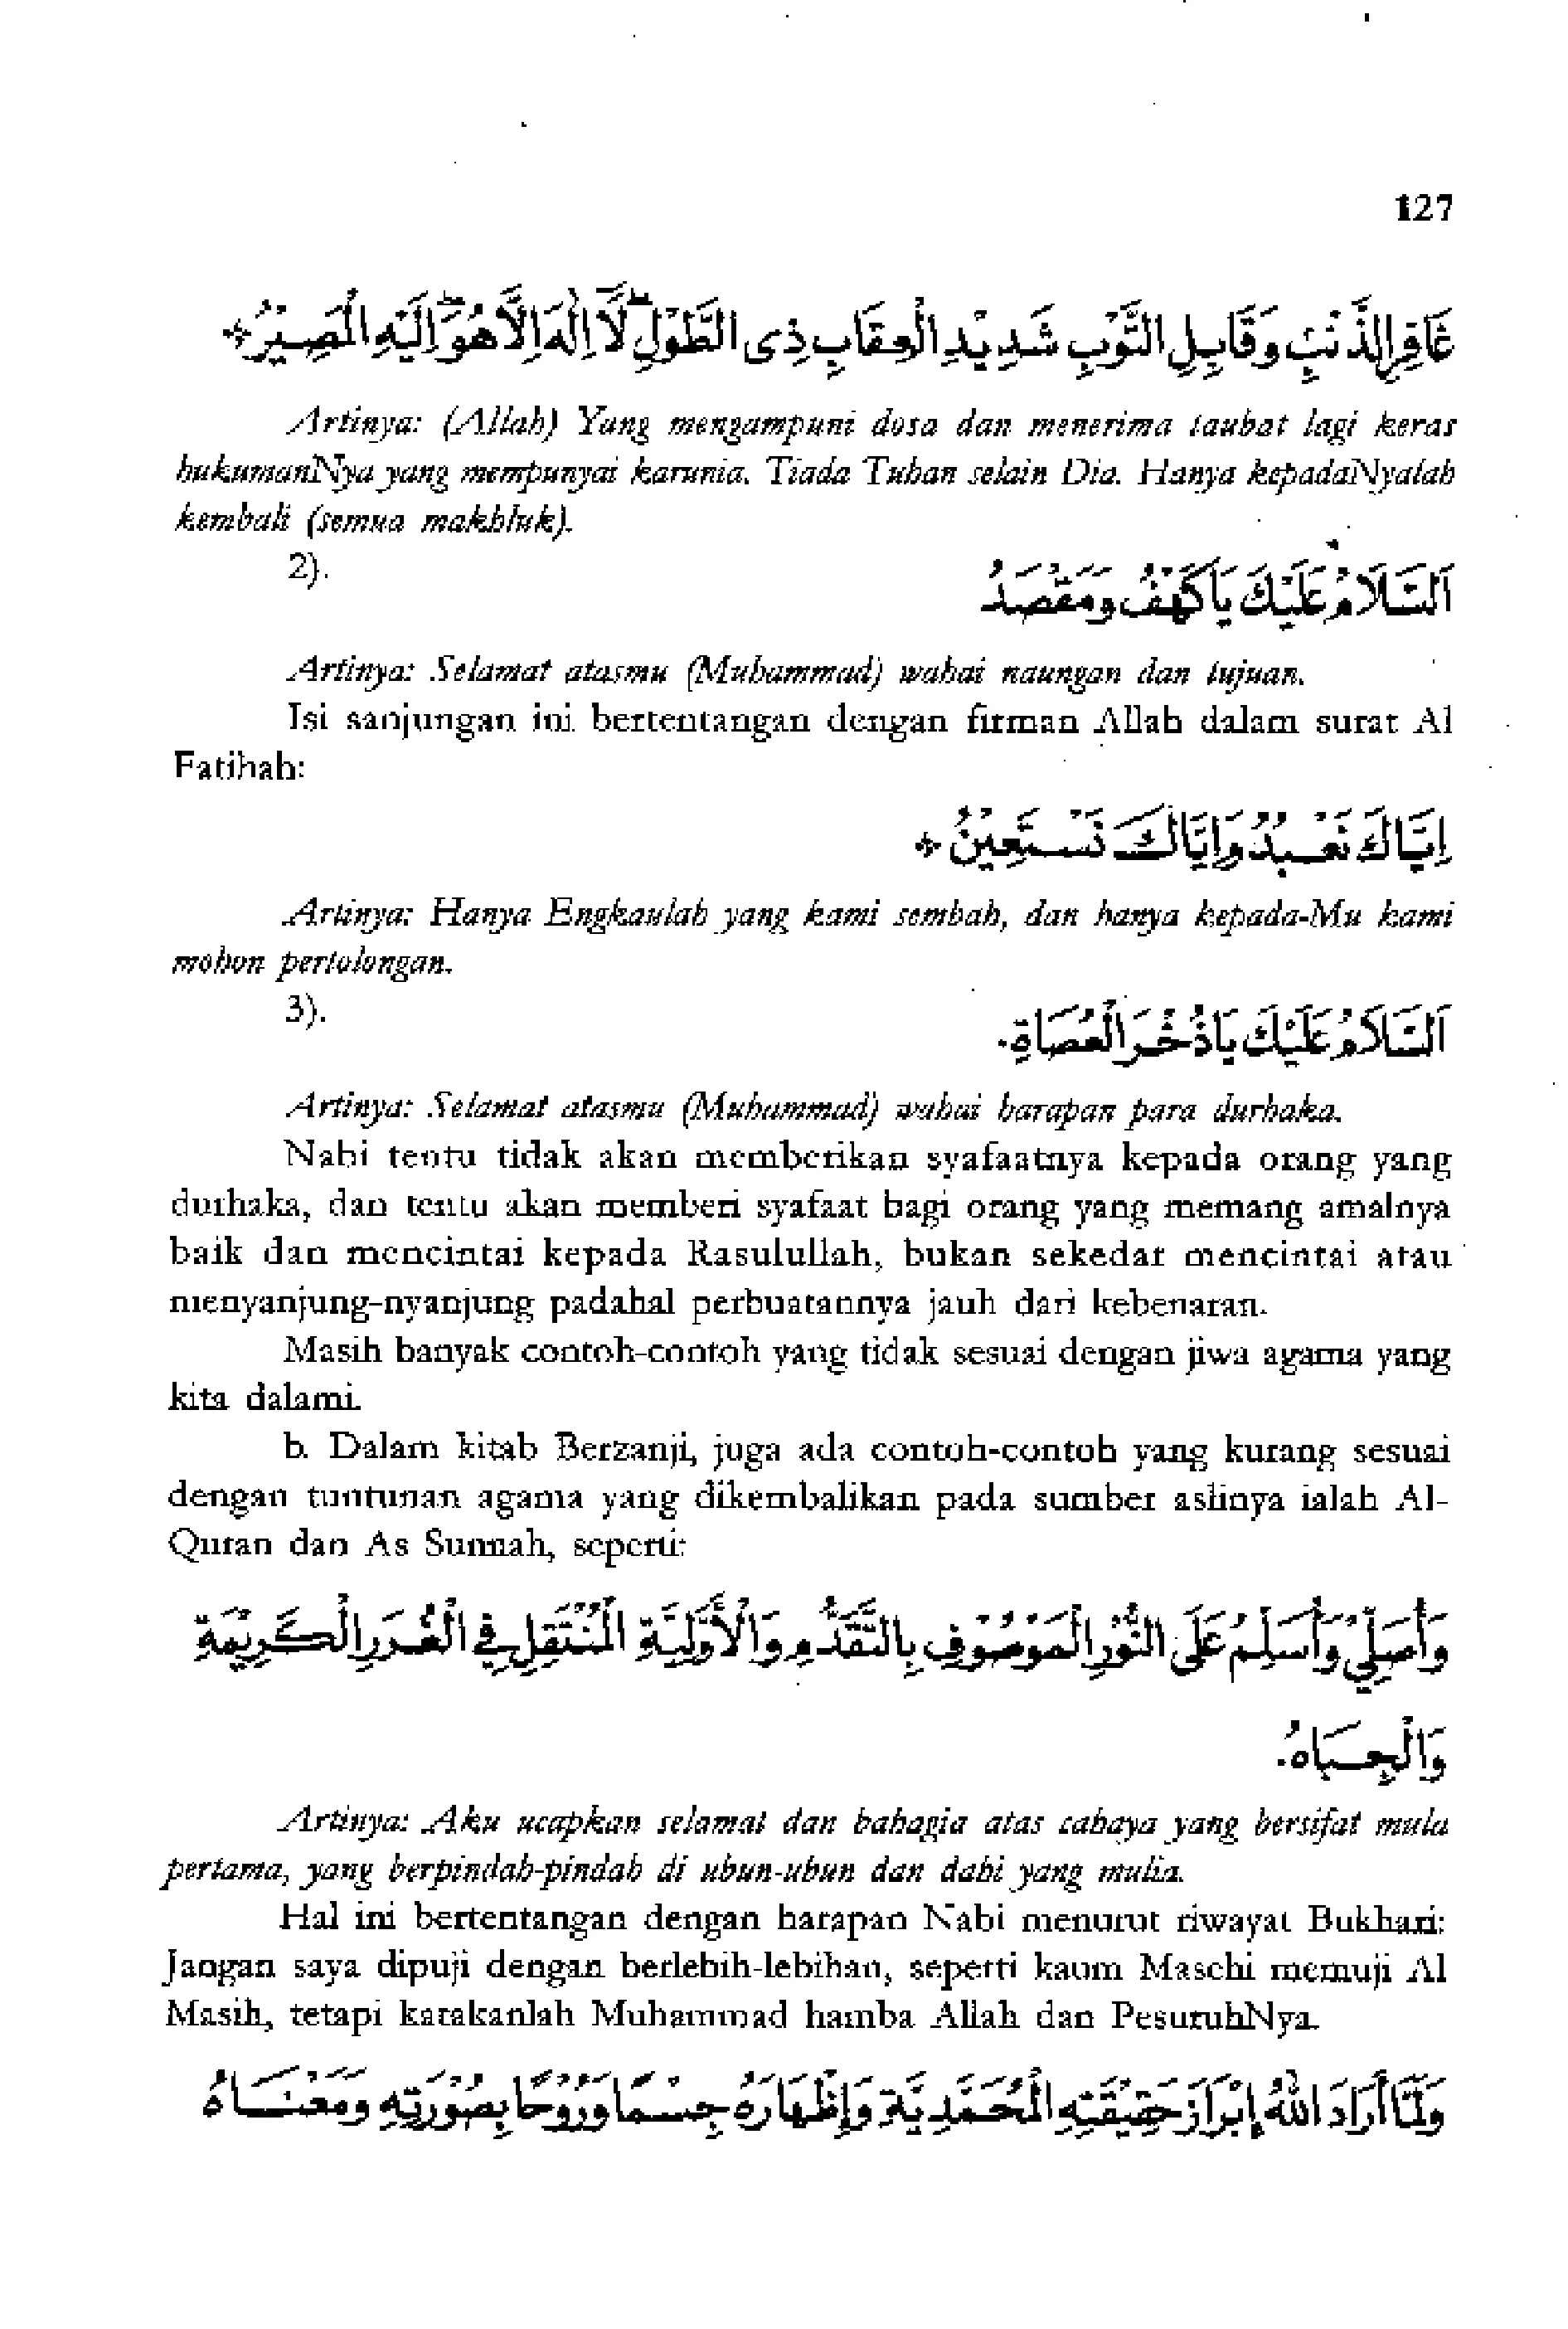 127
غَافِرِالذَّنْبِ وَقَابِلِ التَّوْبِ شَدِيْدِ الْعِقَابِ ذِى الطَّوْلِ ۗ لَآاِلٰهَ اِلَّاهُوَ ۗ اِلَيْهِ الْمَصِيْرُ
Artinya: (Allah) Yang mengampuni dosa dan menerima taubat lagi keras
hukumanNya yang mempunyai karunia. Tiada Tuhan selain Dia. Hanya kepadaNyalah
kembali (semua makhluk).
2).
اَلسَّلَامُ عَلَيْكَ يَاكَهْفُ وَمَقْصَدُ
Artinya: Selamat atasmu (Muhammad) wahai naungan dan tujuan.
Isi sanjungan ini bertentangan dengan firman Allah dalam surat Al
Fatihah:
اِيَّاكَ نَعْبُدُ وَاِيَّاكَ نَسْتَعِيْنُ
Artinya: Hanya Engkaulah yang kami sembah, dan hanya kepada-Mu kami
mohon pertolongan.
3).
اَلسَّلَامُ عَلَيْكَ يَاذُخْرَ الْعُصَاةِ.
Artinya: Selamat atasmu (Muhammad) wahai harapan para durhaka.
Nabi tentu tidak akan memberikan syafaatnya kepada orang yang
durhaka, dan tentu akan memberi syafaat bagi orang yang memang amalnya
baik dan mencintai kepada Rasulullah, bukan sekedar mencintai atau
menyanjung-nyanjung padahal perbuatannya jauh dari kebenaran.
Masih banyak contoh-contoh yang tidak sesuai dengan jiwa agama yang
kita dalami.
b. Dalam kitab Berzanji, juga ada contoh-contoh yang kurang sesuai
dengan tuntunan agama yang dikembalikan pada sumber aslinya ialah Al-
Quran dan As Sunnah, seperti:
وَأُصَلِّيْ وَأُسَلِّمُ عَلَى النُّوْرِ الْمَوْصُوْفِ بِالتَّقَدُّمِ وَالْأَوَّلِيَّةِ الْمُنْتَقِلِ فِي الْغُرَرِ الْكَرِيْمَةِ
وَالْجِبَاهُ.
Artinya: Aku ucapkan selamat dan bahagia atas cahaya yang bersifat mula
pertama, yang berpindah-pindah di ubun-ubun dan dahi yang mulia.
Hal ini bertentangan dengan harapan Nabi menurut riwayat Bukhari:
Jangan saya dipuji dengan berlebih-lebihan, seperti kaum Masehi memuji Al
Masih, tetapi katakanlah Muhammad hamba Allah dan PesuruhNya.
وَلَمَّاأَرَادَ اللّٰهُ إِبْرَازَ حَقِيْقَتِهِ الْمُحَمَّدِيَّةِ وَإِظْهَارَهُ جِسْمًاوَرُوْحًا بِصُوْرَتِهِ وَمَعْنَاهُ